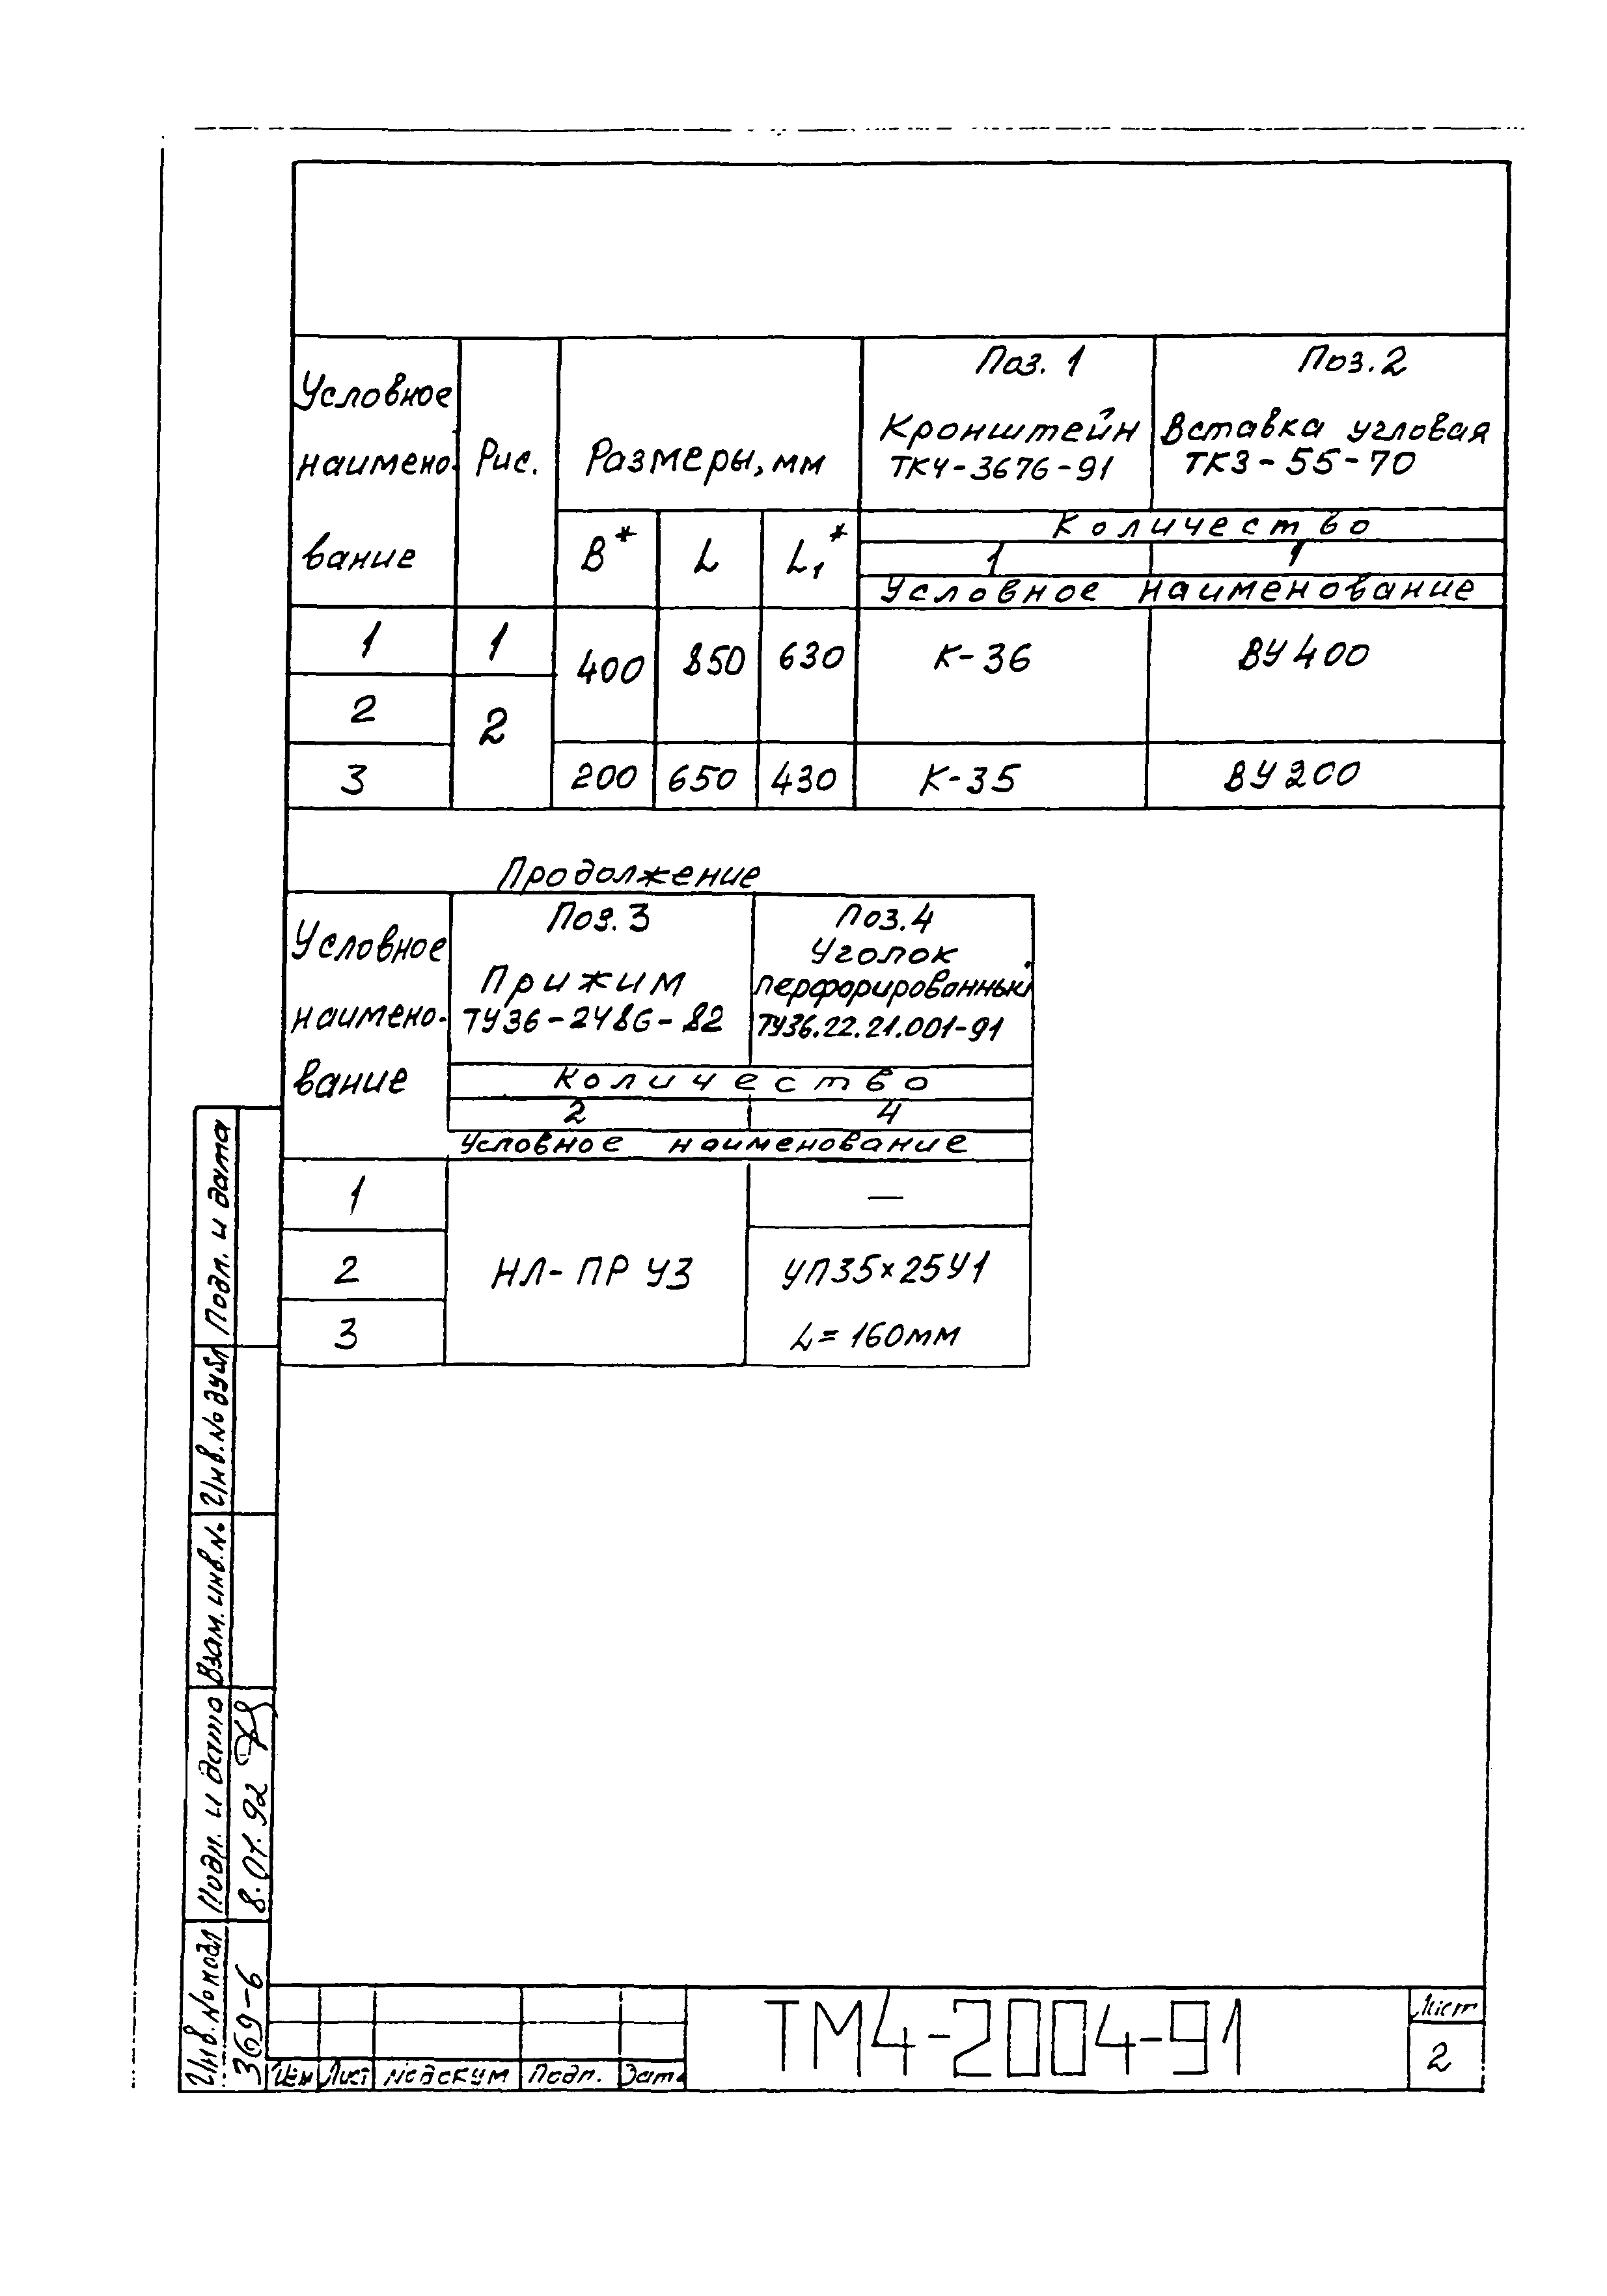 Условное наимено- вание
Рис.
Размеры, мм
Поз. 1
Кронштейн
ТК4-3676-91
Поз. 2
Вставка угловая
ТК3-55-70
В* L L₁*
Количество
1 1
Условное наименование
1 1 400 850 630 К-36 ВУ400
2 2
3 200 650 430 К-35 ВУ200
Продолжение
Условное наимено- вание
Поз. 3
Прижим
ТУ36-2486-82
Поз. 4
Уголок
перфорированный
ТУ36.22.21.001-91
Количество
2 4
Условное наименование
1 —
2 НЛ-ПР У3 УП35×25У1
3 L=160мм
Подп. и дата
Инв. № дубл
Взам. инв. №
Подп. и дата
8.01.92
Инв. № подл
369-6
Изм Лист № докум Подп. Дата
ТМ4-2004-91
Лист
2